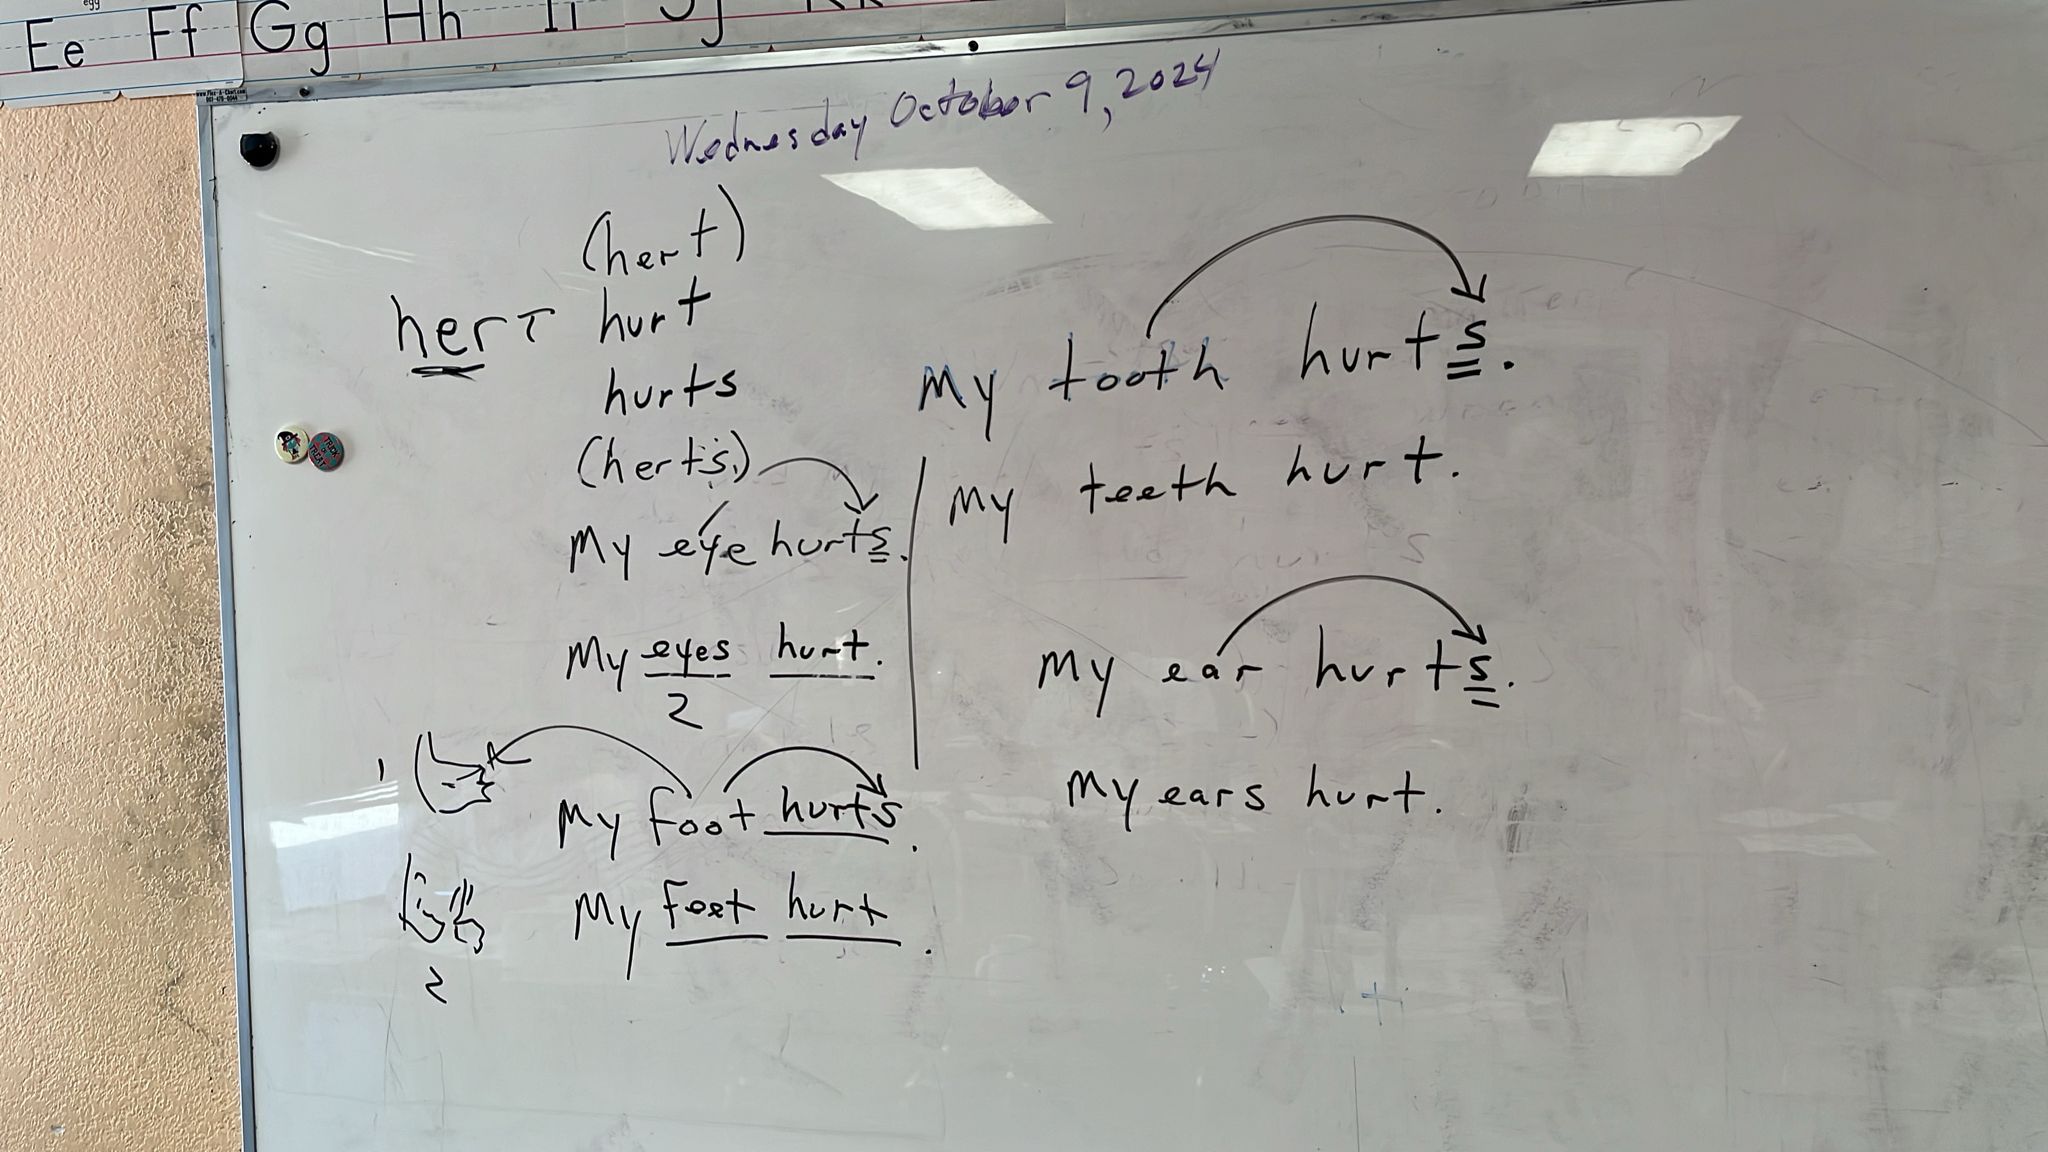 egg
Ee Ff Gg Hh Ii Jj Kk
Wednesday October 9, 2024
(hert)
hert hurt
hurts
(herts)
My eye hurts.
My eyes hurt.
2
1
My foot hurts.
My feet hurt.
2
My tooth hurts.
My teeth hurt.
My ear hurts.
My ears hurt.
TRICK OR TREAT